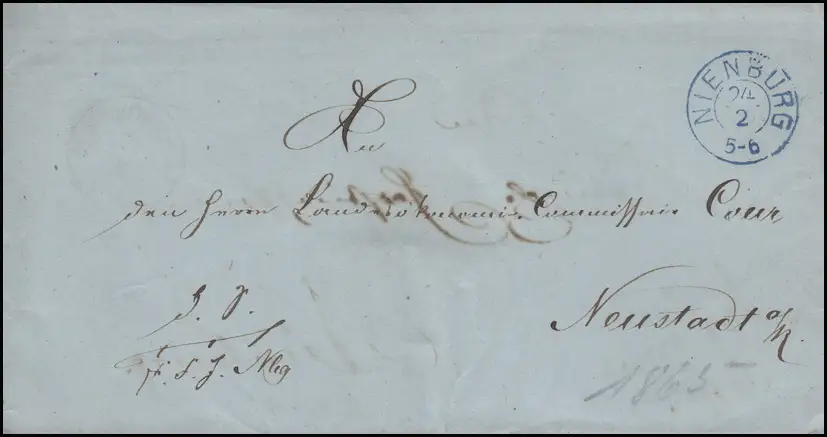 NIENBURG
24.
2
5-6
An
den Herrn Landesökonomie Commissair Cour
Neustadt a/R.
1865